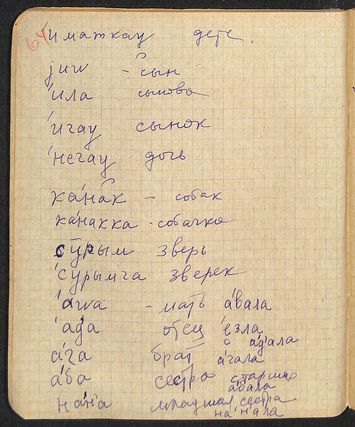 64
и́маткау дете
jиw – сын
и́ла сынова
и́гау сынок
не́гау дочь
кана́к – собак
кана́кка – собачка
сӯры́м зверь
сӯры́мча зверек
а́ша – мать а́вала
а́да отец е́зла
с а́дала
а́га брат а́гала
а́ба сестра старшая
а́бала
на́на младшая сестра
на́нала